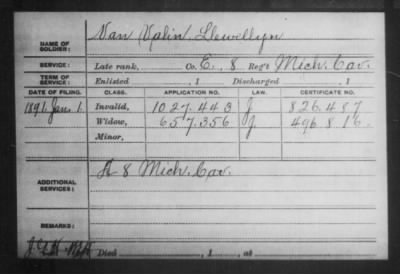 NAME OF SOLDIER: Van Valin, Llewellyn
SERVICE: Late rank, Co. E, 8 Reg't Mich. Cav.
TERM OF SERVICE: Enlisted , 1 Discharged , 1
DATE OF FILING. CLASS. APPLICATION NO. LAW. CERTIFICATE NO.
1891, Jan. 1. Invalid, 1027.443 J. 826.487
Widow, 657.356 J. 496.816
Minor,
ADDITIONAL SERVICES: A 8 Mich. Cav.
REMARKS:
Died , 1 , at